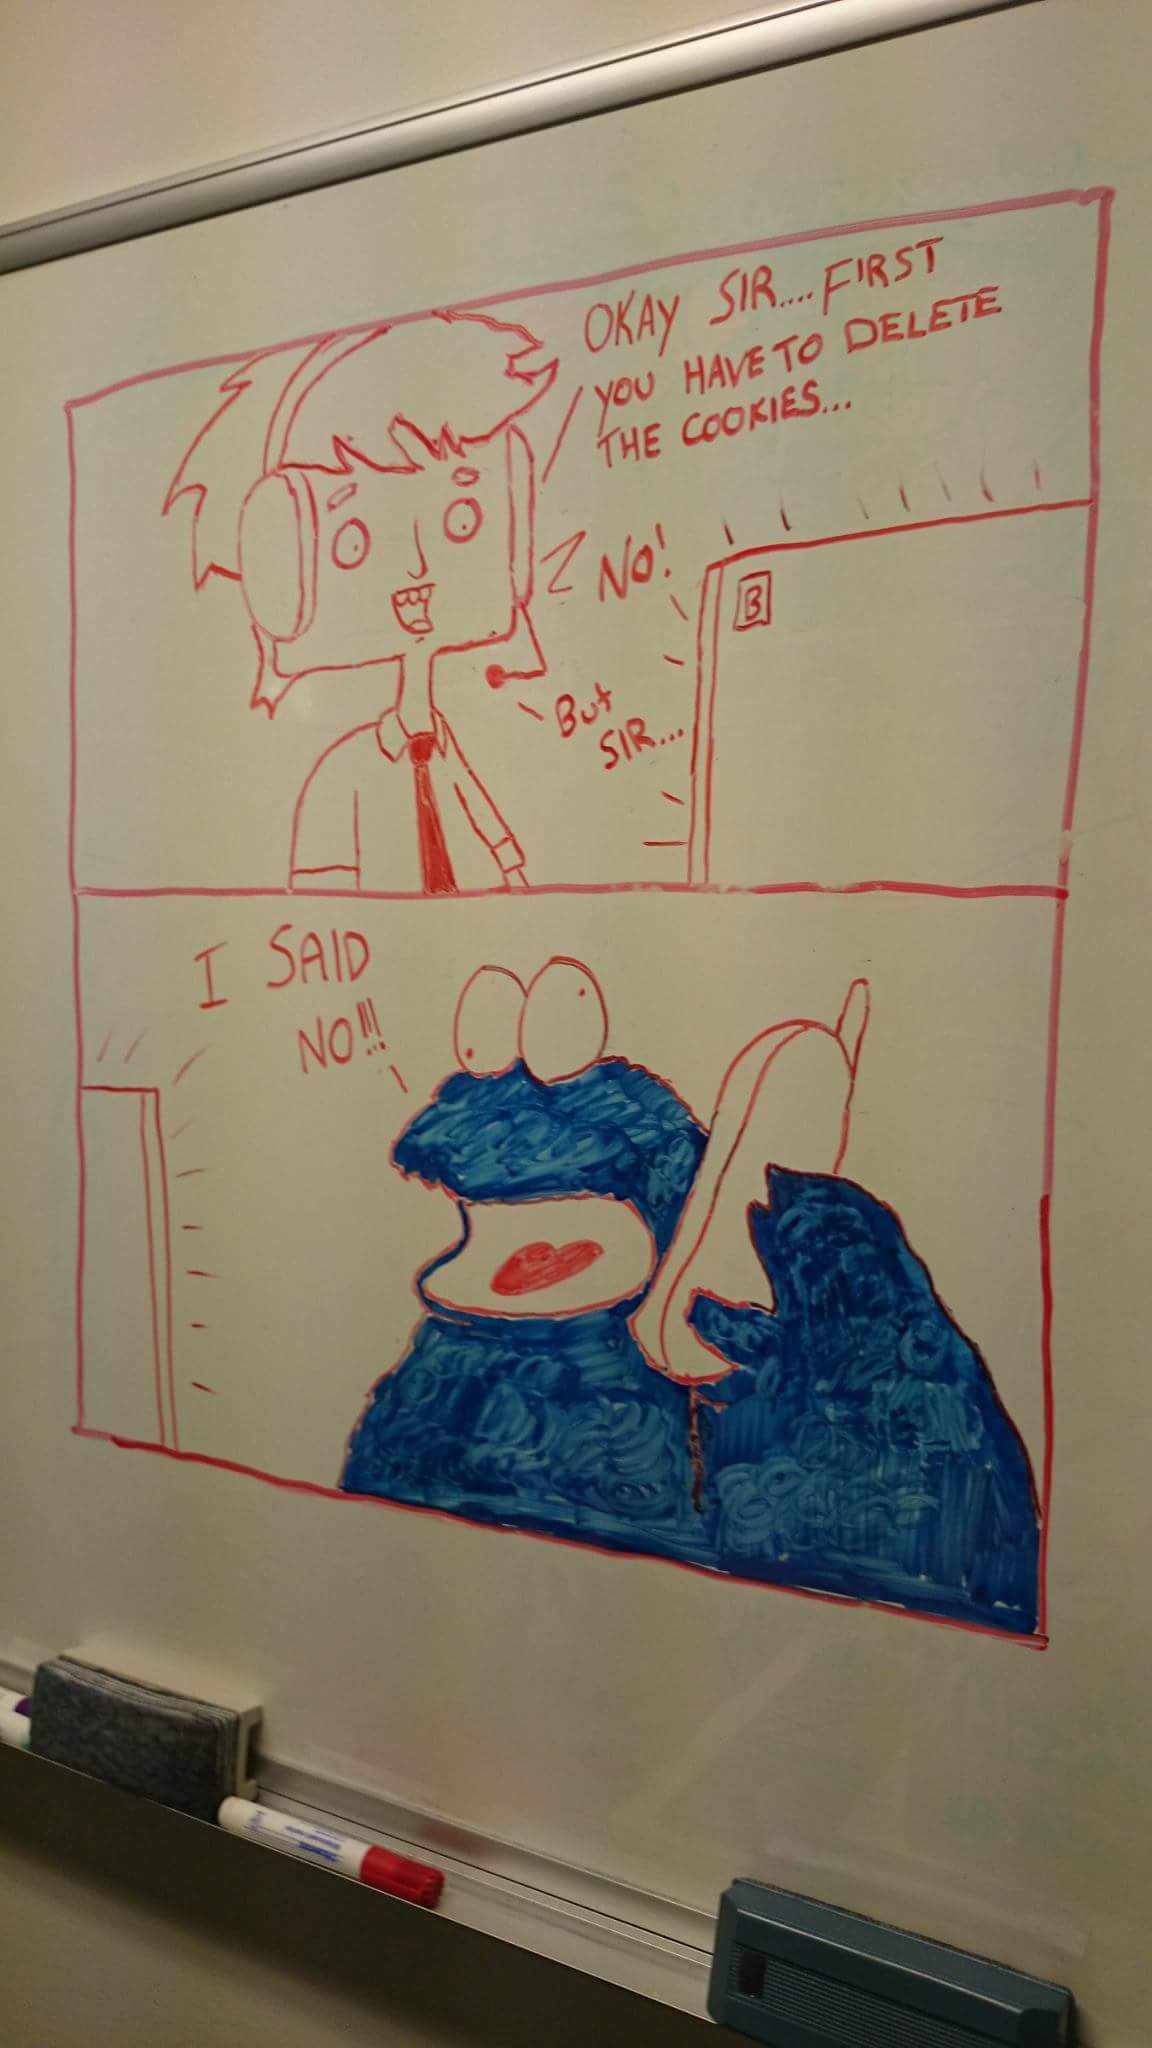 OKAY SIR.... FIRST
YOU HAVE TO DELETE
THE COOKIES...
NO!
BUT
SIR...
B
I SAID
NO!!!